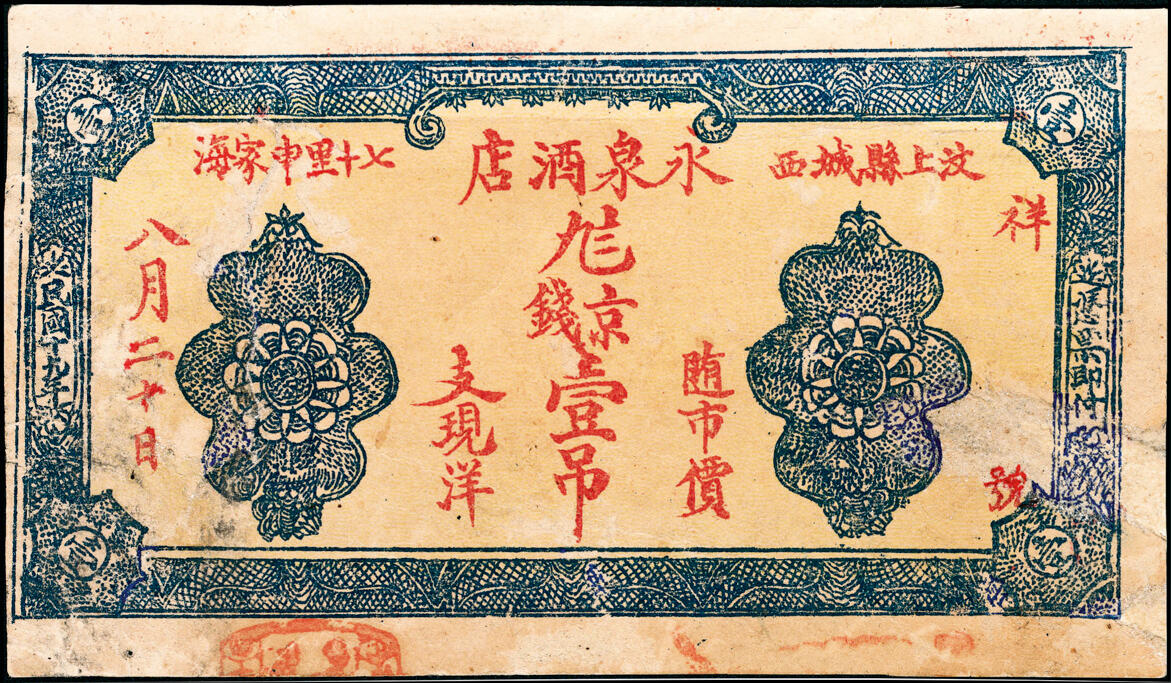 汶上縣城西
永泉酒店
七十里申家海
祥
號
随市價
京錢
壹吊
支現洋
八月二十日
民國十九年
壹
壹